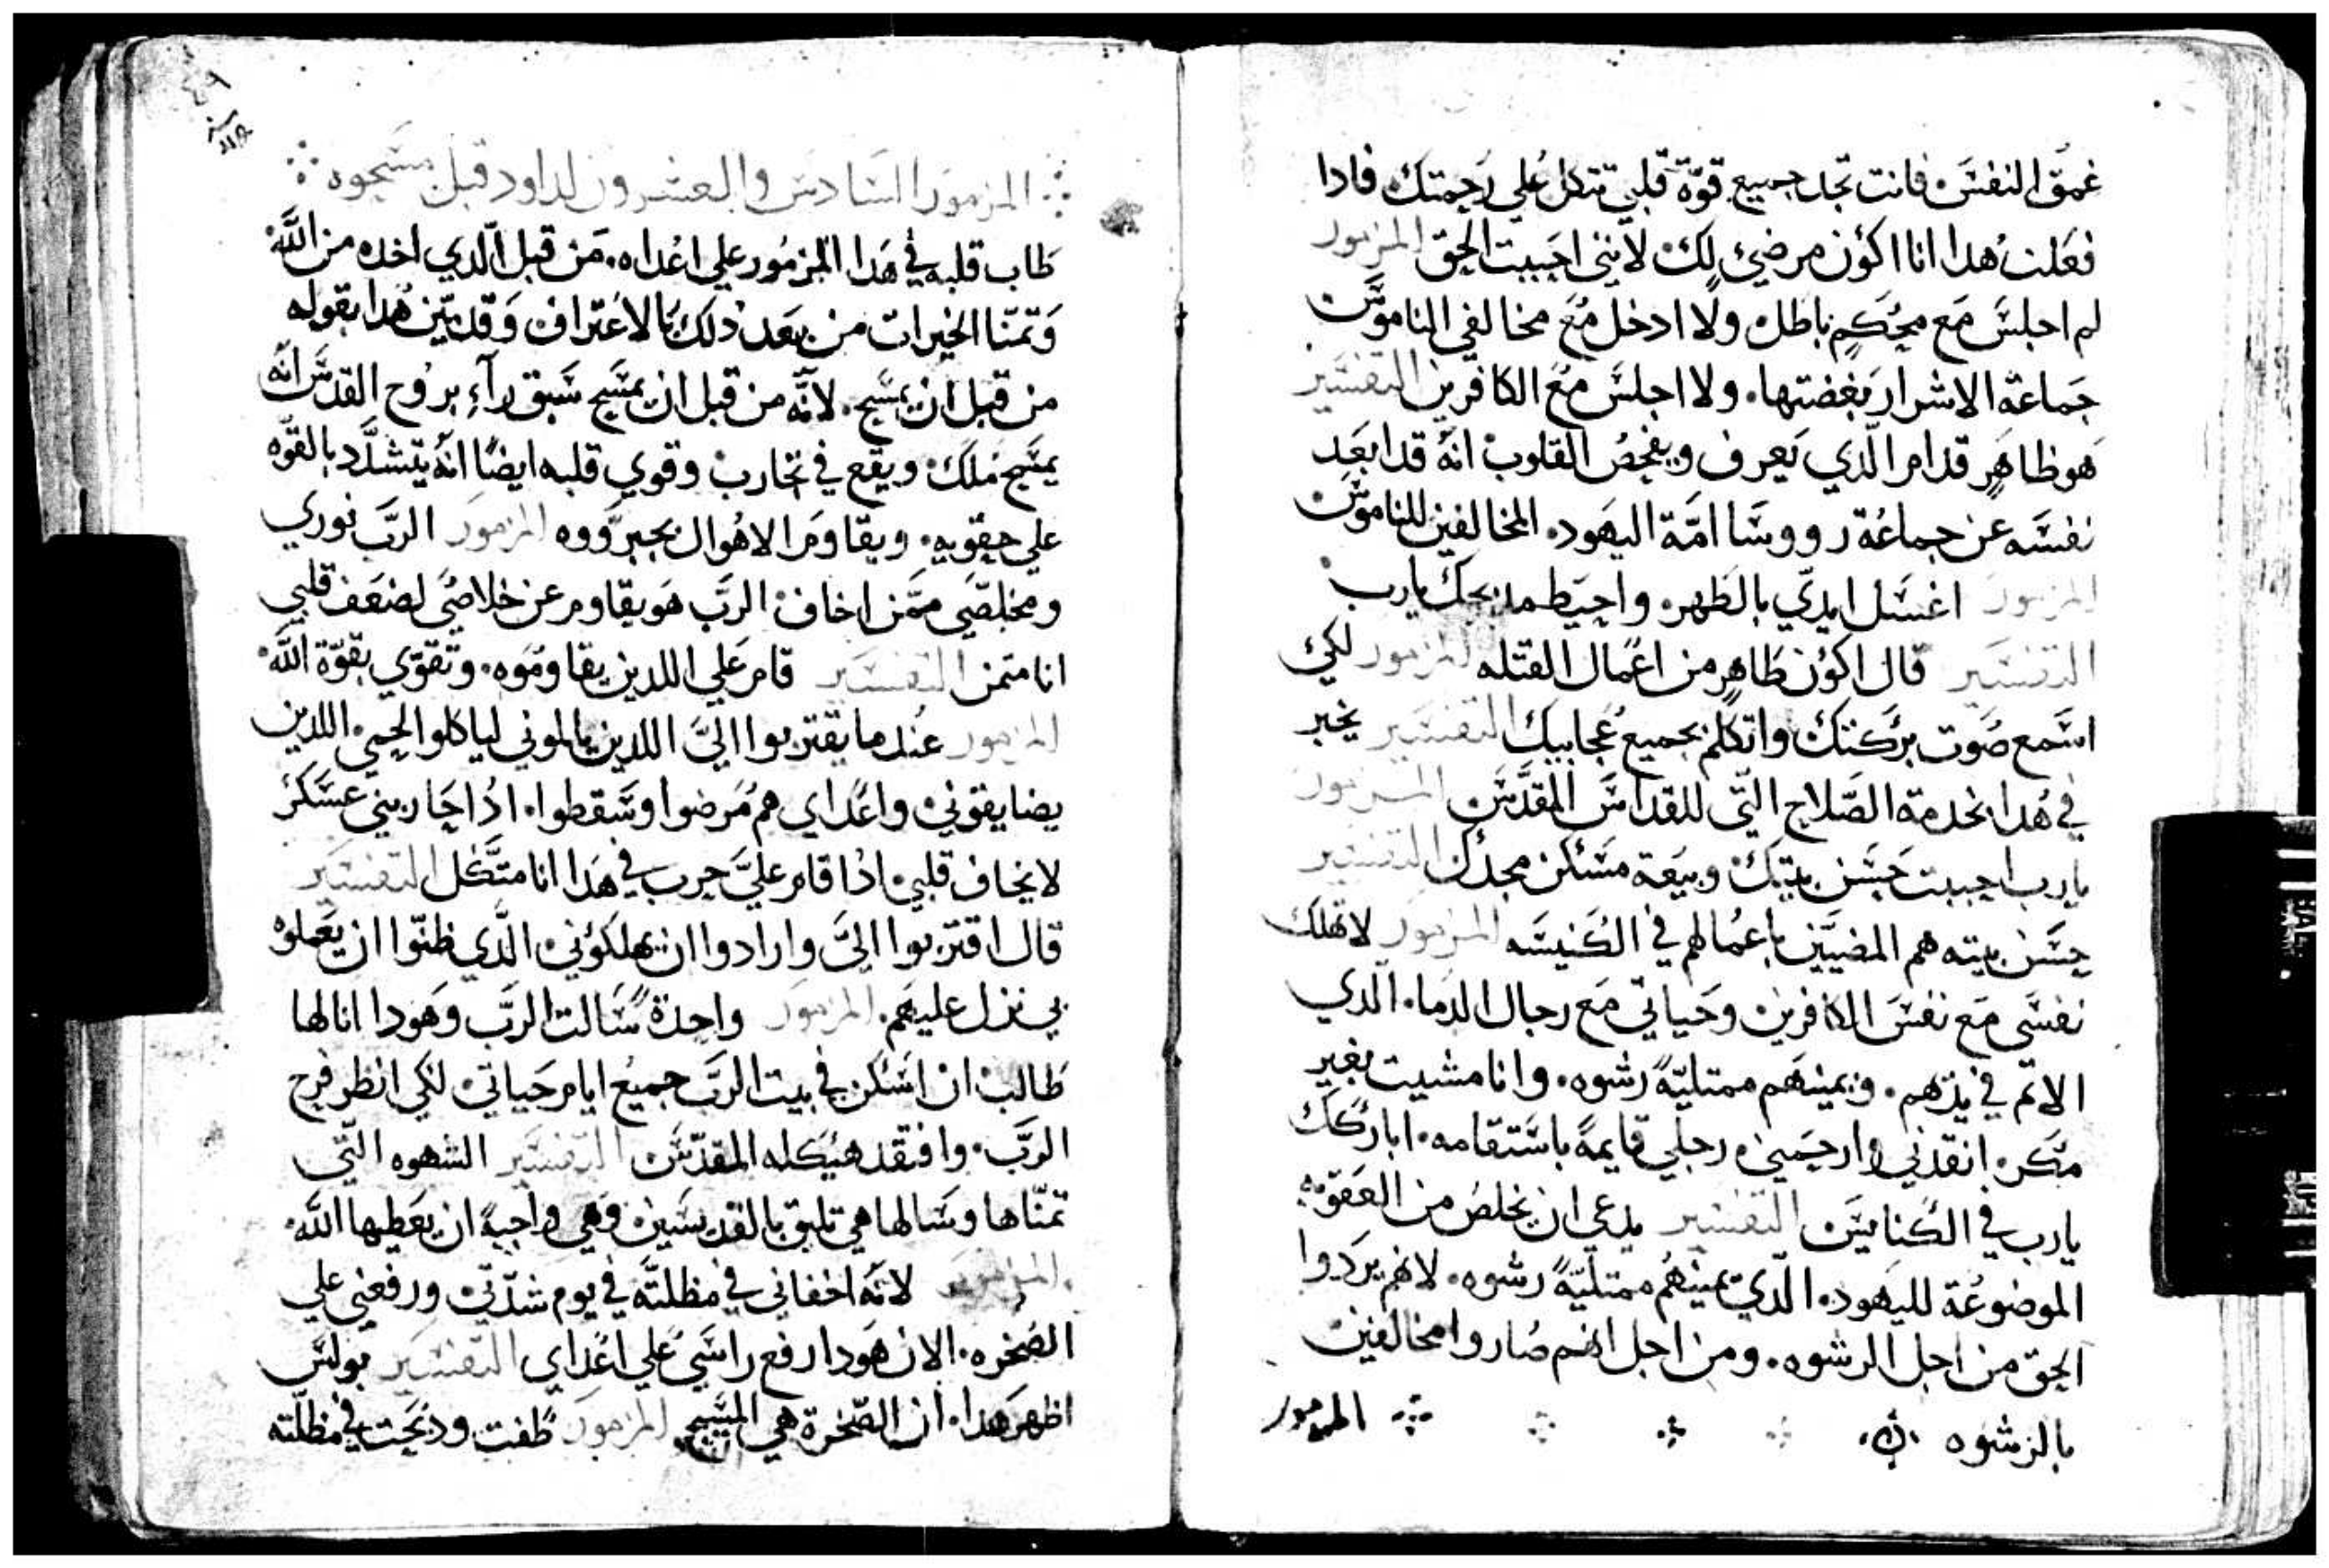 غمق النفس فانت تجد جميع قوّة قلبي تتكل علي رحمتك فادا
فعلت هدا انا اكون مرضي لك لانني احببت الحق المزمور
لم اجلس مع محكم باطل ولا ادخل مع مخالفي الناموس
جماعة الاشرار بغضتها. ولا اجلس مع الكافرين التفسير
هو ظاهر قدام الّدي يعرف ويفحص القلوب انه قد ابعد
نفسه عن جماعة رووسا امّة اليهود. المخالفين للناموس
المزمور اغسل ايديّ بالطهر واحيط مدبحك يارب
التفسير قال اكون طاهر من اعمال القتله المزمور لكي
اسمع صوت بركتك واتكلم بجميع عجايبك التفسير يخبر
في هدا بخدمة الصلاح التّي للقداس المقدّس المزمور
يارب احببت حسن بيتك وبيعة مسكن مجدك التفسير
حسن بيته هم المضيّين باعمالهم في الكنيسه المزمور لا تهلك
نفسي مع نفس الكافرين وحياتي مع رجال الدما. الّدي
الاتم في يدهم. ويمينهم ممتليّة رشوه. وانا مشيت بغير
مكر. انقدني وارحمني رجلي قايمة باستقامه. اباركك
يارب في الكنايس التفسير يدعي ان يخلص من العقوبه
الموضوعة لليهود. الّدي يمينهم ممتليّة رشوه. لانهم يردوا
الحق من اجل الرشوه. ومن اجل انهم صاروا مخالفين
بالرشوه
المزمور
المزمور السادس والعشرون لداود قبل مسحوه
طاب قلبه في هدا المزمور علي اعداه. من قبل الّدي اخده من الله
وتمنّا الخيرات من بعد دلك بالاعتراف وقد بيّن هدا بقوله
من قبل ان يمسح. لانّه من قبل ان يمسح سبق رآء بروح القدس انّه
يمسح ملك ويقع في تجارب وقوي قلبه ايضًا انّه يتشدّد بالقوّه
علي حقويه. ويقاوم الاهوال بجبرووه المزمور الربّ نوري
ومخلصي ممّن اخاف الربّ هو يقاوم عن خلاصي لضعف قلبي
انا متمن التفسير قام علي اللدين يقاوموه. وتقوّي بقوّة الله
المزمور عند ما يقتربوا اليّ اللدين يالموني لياكلوا لحمي اللدين
يضايقوني واعداي هم مرضوا وسقطوا. ادا حاربني عسكر
لا يخاف قلبي ادا قام عليّ حرب في هدا انا متّكل التفسير
قال اقتربوا اليّ وارادوا ان يهلكوني الّدي ظنّوا ان يعملوه
بي نزل عليهم. المزمور واحدة سالت الربّ وهودا انا لها
طالب ان اسكن في بيت الربّ جميع ايام حياتي لكي انظر فرح
الربّ. وافتقد هيكله المقدّس التفسير الشهوه التّي
تمنّاها وسالها هي تليق بالقديسين وهي واجبة ان يعطيها الله
المزمور لانّه اخفاني في مظلتّه في يوم شدّتي ورفعني علي
الصخره. الان هودا رفع راسي علي اعداي التفسير بولس
اظهر هدا. ان الصّخرة هي المسيح المزمور طفت ودبحت في مظلّته